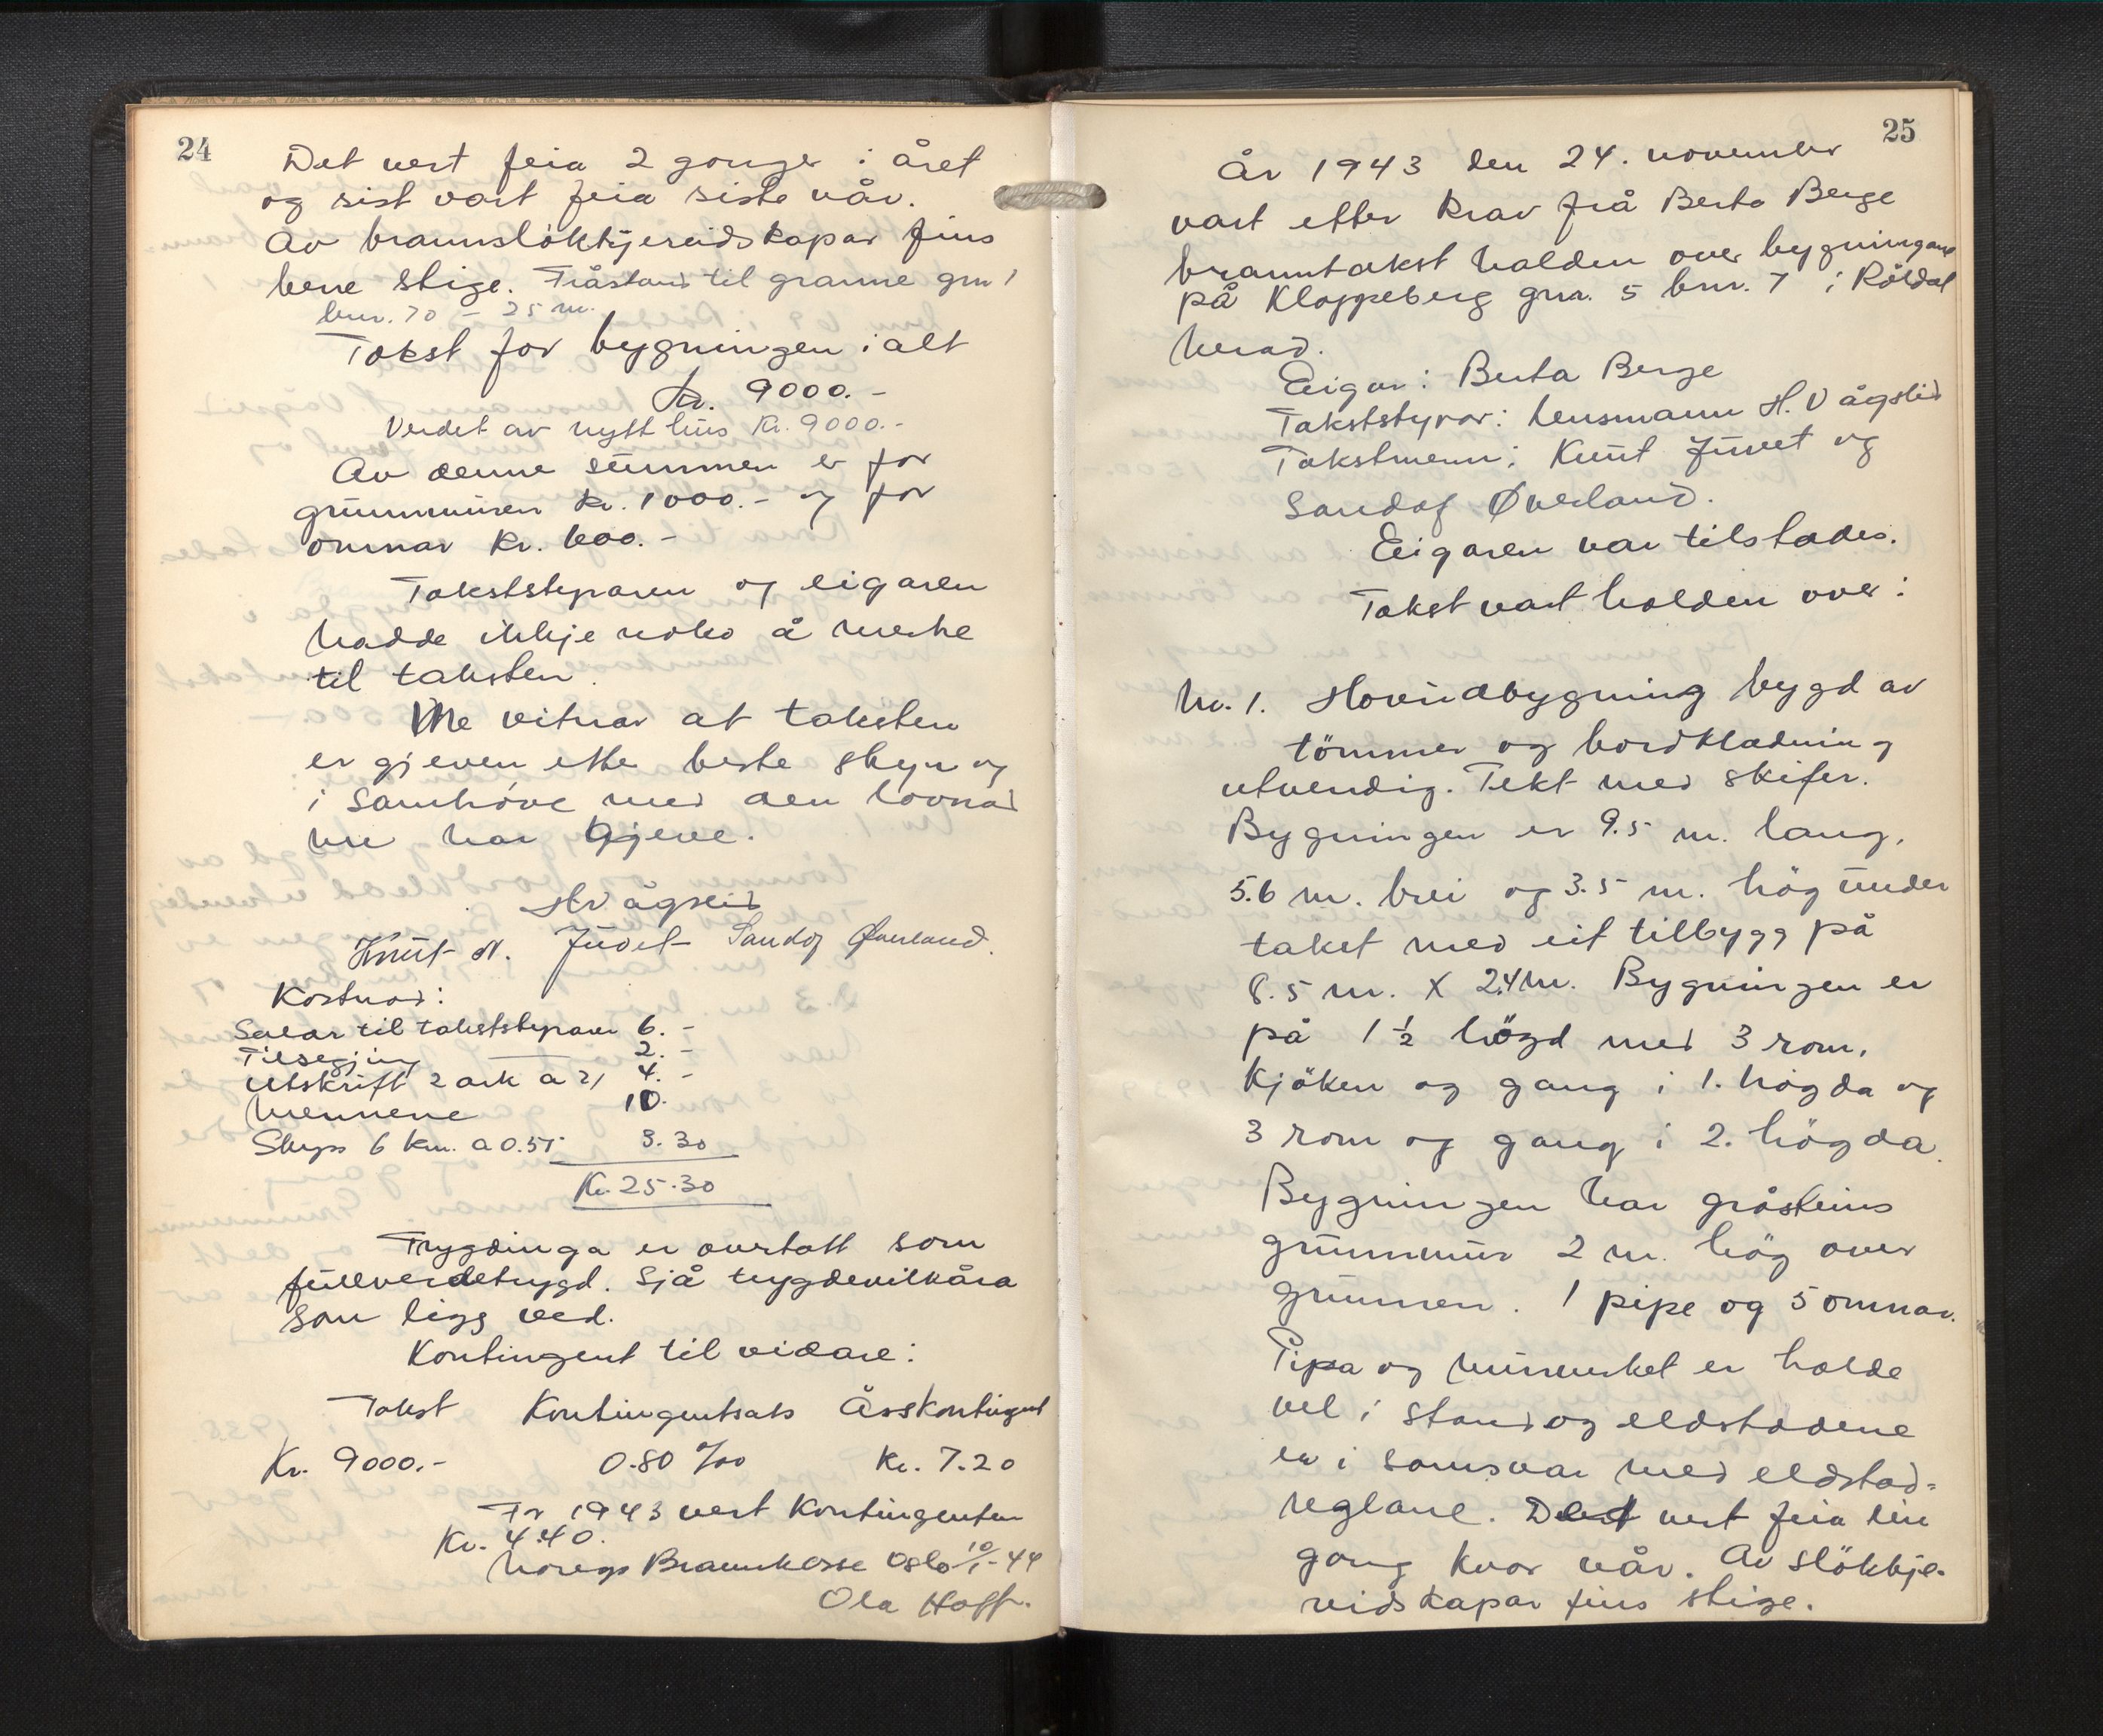 24
Det vert feia 2 gonger i året
og sist vart feia siste vår.
Av brannsløkkjereidskapar fins
bere stige. Fråstand til granne gnr 1
bnr. 70 – 25 m.
Takst for bygningen i alt
Kr. 9000.-
Verdet av nytt hus Kr. 9000.-
Av denne summen er for
grunnmuren kr. 1000.- og for
omnar kr. 600.-
Takststyraren og eigaren
hadde ikkje noko å merke
til taksten.
Me vitnar at taksten
er gjeven etter beste skyn og
i samhöve med den lovnad
me har gjeve.
H Vågslid
Knut N. Juvet Sandof Øverland.
Kostnad:
Salar til takststyraren 6.-
Tilsegjing — 2.-
Utskrift 2 ark a 2/ 4.-
Mennene 10.
Skyss 6 km. a 0.55 3.30
Kr. 25.30
Trygdinga er overtatt som
fullverdetrygd. Sjå trygdevilkåra
som ligg ved.
Kontingent til vidare:
Takst Kontingentsats Årskontingent
Kr. 9000.- 0.80 ‰ Kr. 7.20
For 1943 vert kontingenten
Kr. 4.40.
Noregs Brannkasse Oslo 10/1-44
Ola Hoff.
25
År 1943 den 24. november
vart etter krav frå Berta Berge
branntakst halden over bygningane
på Kloppeberg gnr. 5 bnr. 7 i Röldal
herad.
Eigar: Berta Berge
Takststyrar: Lensmann H. Vågslid
Takstmenn: Knut Juvet og
Sandof Øverland.
Eigaren var tilstades.
Takst vart halden over:
Nr. 1. Hovudbygning bygd av
tömmer og bordkladning
utvendig. Tekt med skifer.
Bygningen er 9.5 m. lang,
5.6 m. brei og 3.5 m. hög under
taket med eit tilbygg på
8.5 m. x 2.4 m. Bygningen er
på 1 1/2 högd med 3 rom,
kjöken og gang i 1. högda og
3 rom og gang i 2. högda.
Bygningen har gråsteins
grunnmur 2 m. hög over
grunnen. 1 pipe og 5 omnar.
Pipa og murverket er halde
vel i stand og eldstadene
er i samsvar med eldstad-
reglane. Det vert feia ein
gong kvar vår. Av slökkje-
reidskapar fins stige.